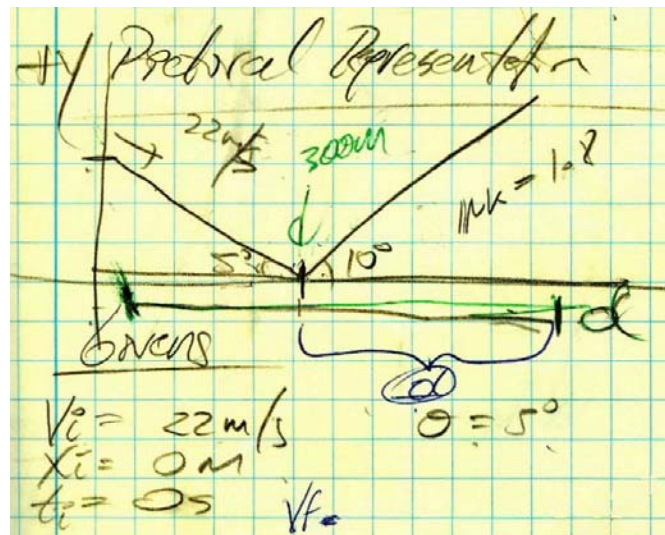 +y Pictorial Representation
22m/s
300m
μk = 1.8
5° 10°
d
Givens
Vi = 22 m/s
θ = 5°
xi = 0m
ti = 0s
Vf =